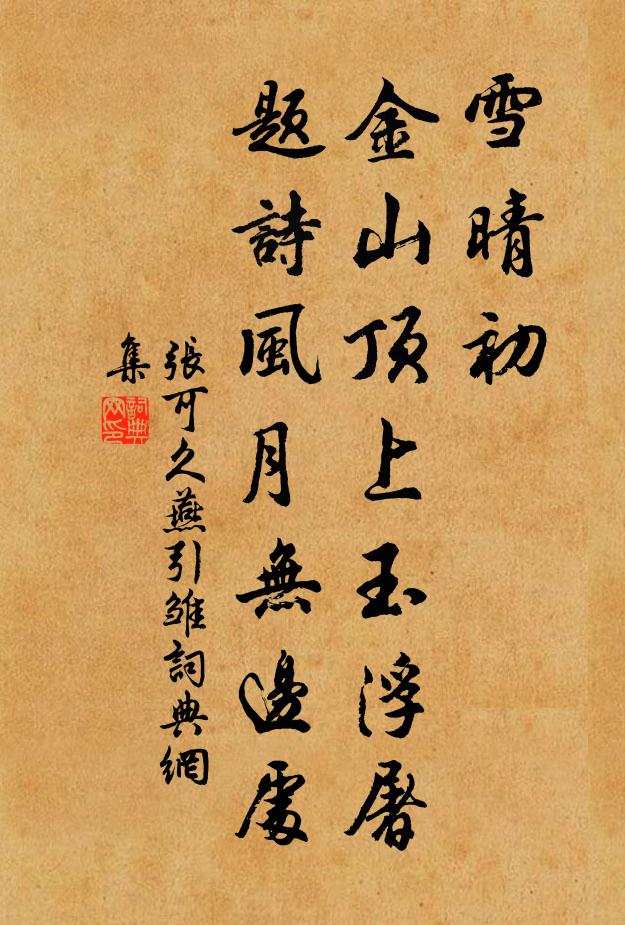 雪晴初
金山頂上玉浮屠
題詩風月無邊處
張可久燕引雛詞典網
集
詞典
網印